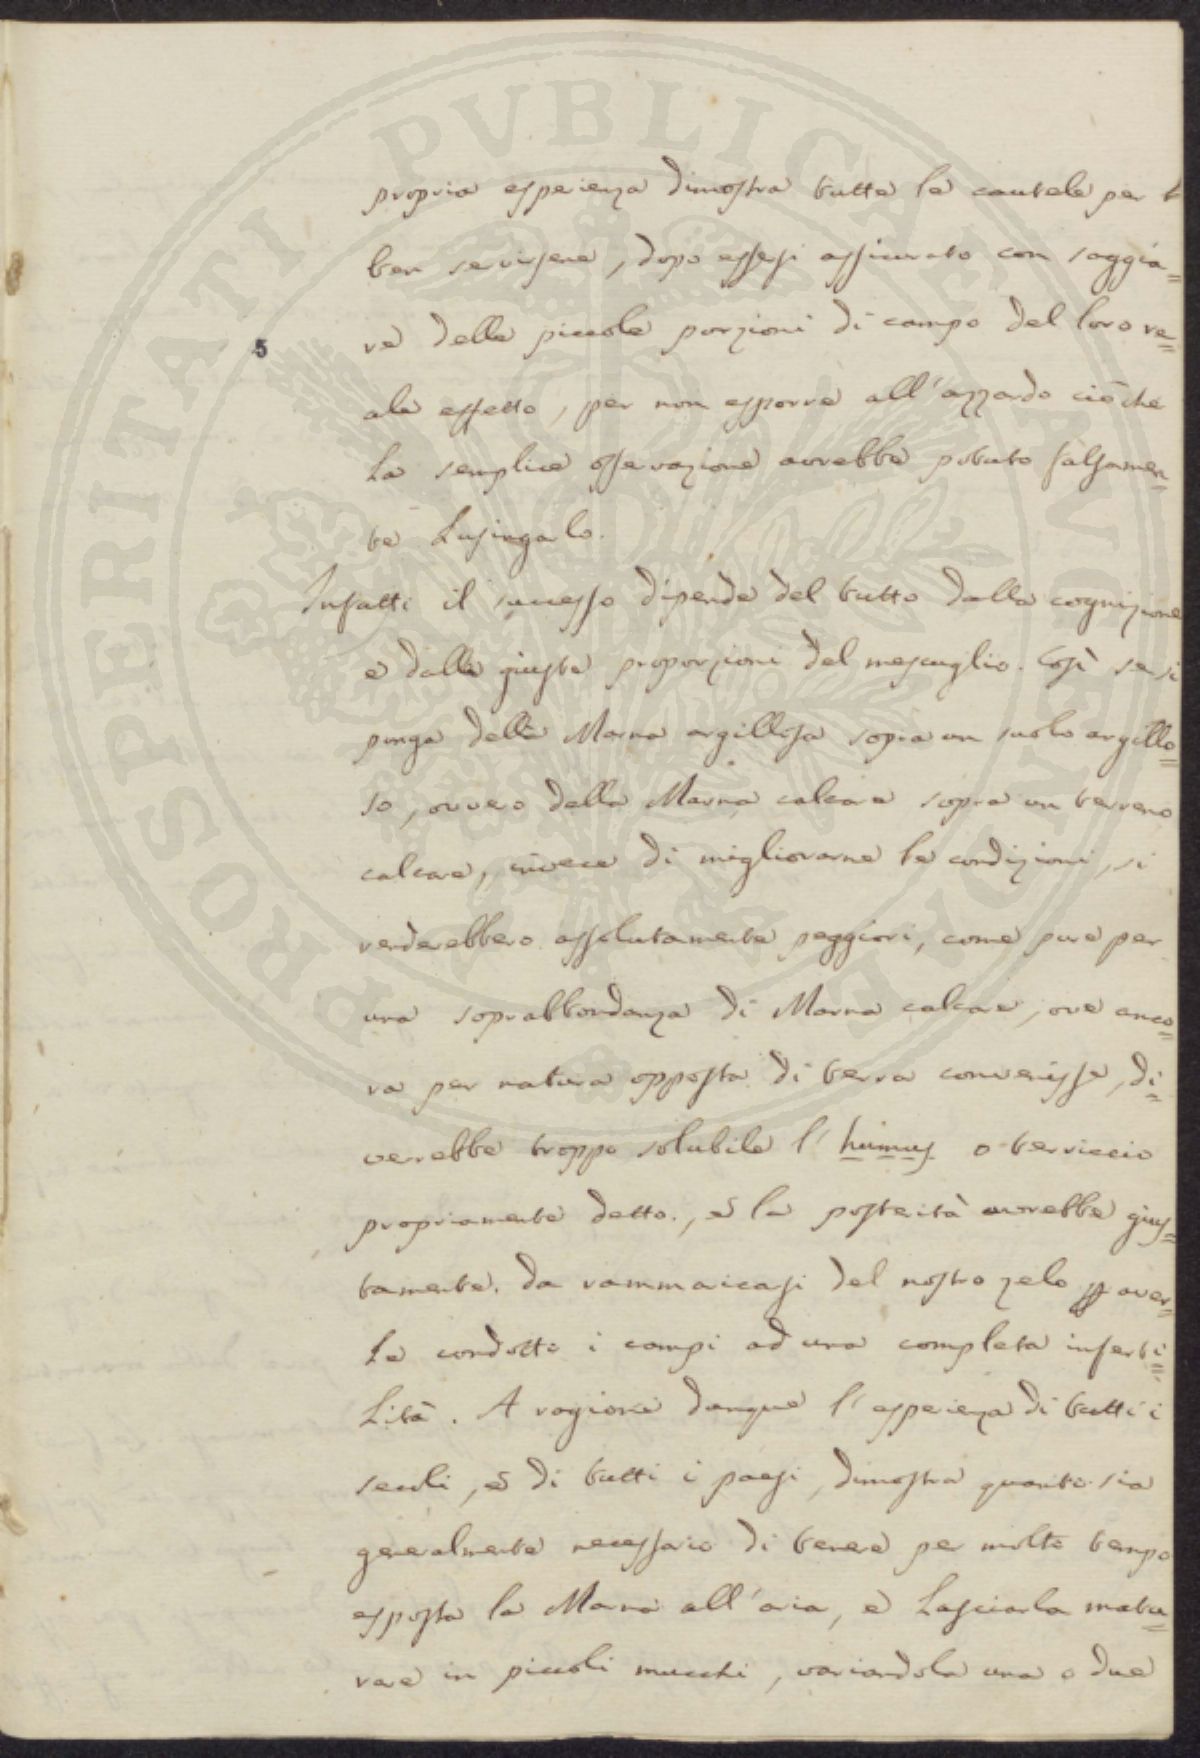 PROSPERITATI PVBLICAE AVGENDAE
propria esperienza dimostra tutte le cautele per
ben servirsene, dopo essersi assicurato con saggia=
re delle piccole porzioni di campo del loro re=
5
ale effetto, per non esporre all'azzardo ciò che
la semplice osservazione avrebbe potuto falsamen=
te Lusingalo.
Infatti il successo dipende del tutto dalla cognizione
e dalle giuste proporzioni del mescuglio. Così se si
ponga della Marna argillosa sopra un suolo argillo=
so, ovvero della Marna calcare sopra un terreno
calcare, invece di migliorarne le condizioni, si
renderebbero assolutamente peggiori, come pure per
una soprabbondanza di Marna calcare, ove anco=
ra per natura opposta di terra convenisse, di=
verrebbe troppo solubile l'humus o terriccio
propriamente detto., e la posterità avrebbe gius=
tamente. da rammaricasi del nostro zelo aver=
Le condotti i campi ad una completa inferti=
Lità. A ragione dunque l'esperienza di tutti i
secoli, e di tutti i paesi, dimostra quanto sia
generalmente necessario di tenere per molto tempo
esposta la Marna all'aria, e Lasciarla matu=
rare in piccoli mucchi, variandola una o due